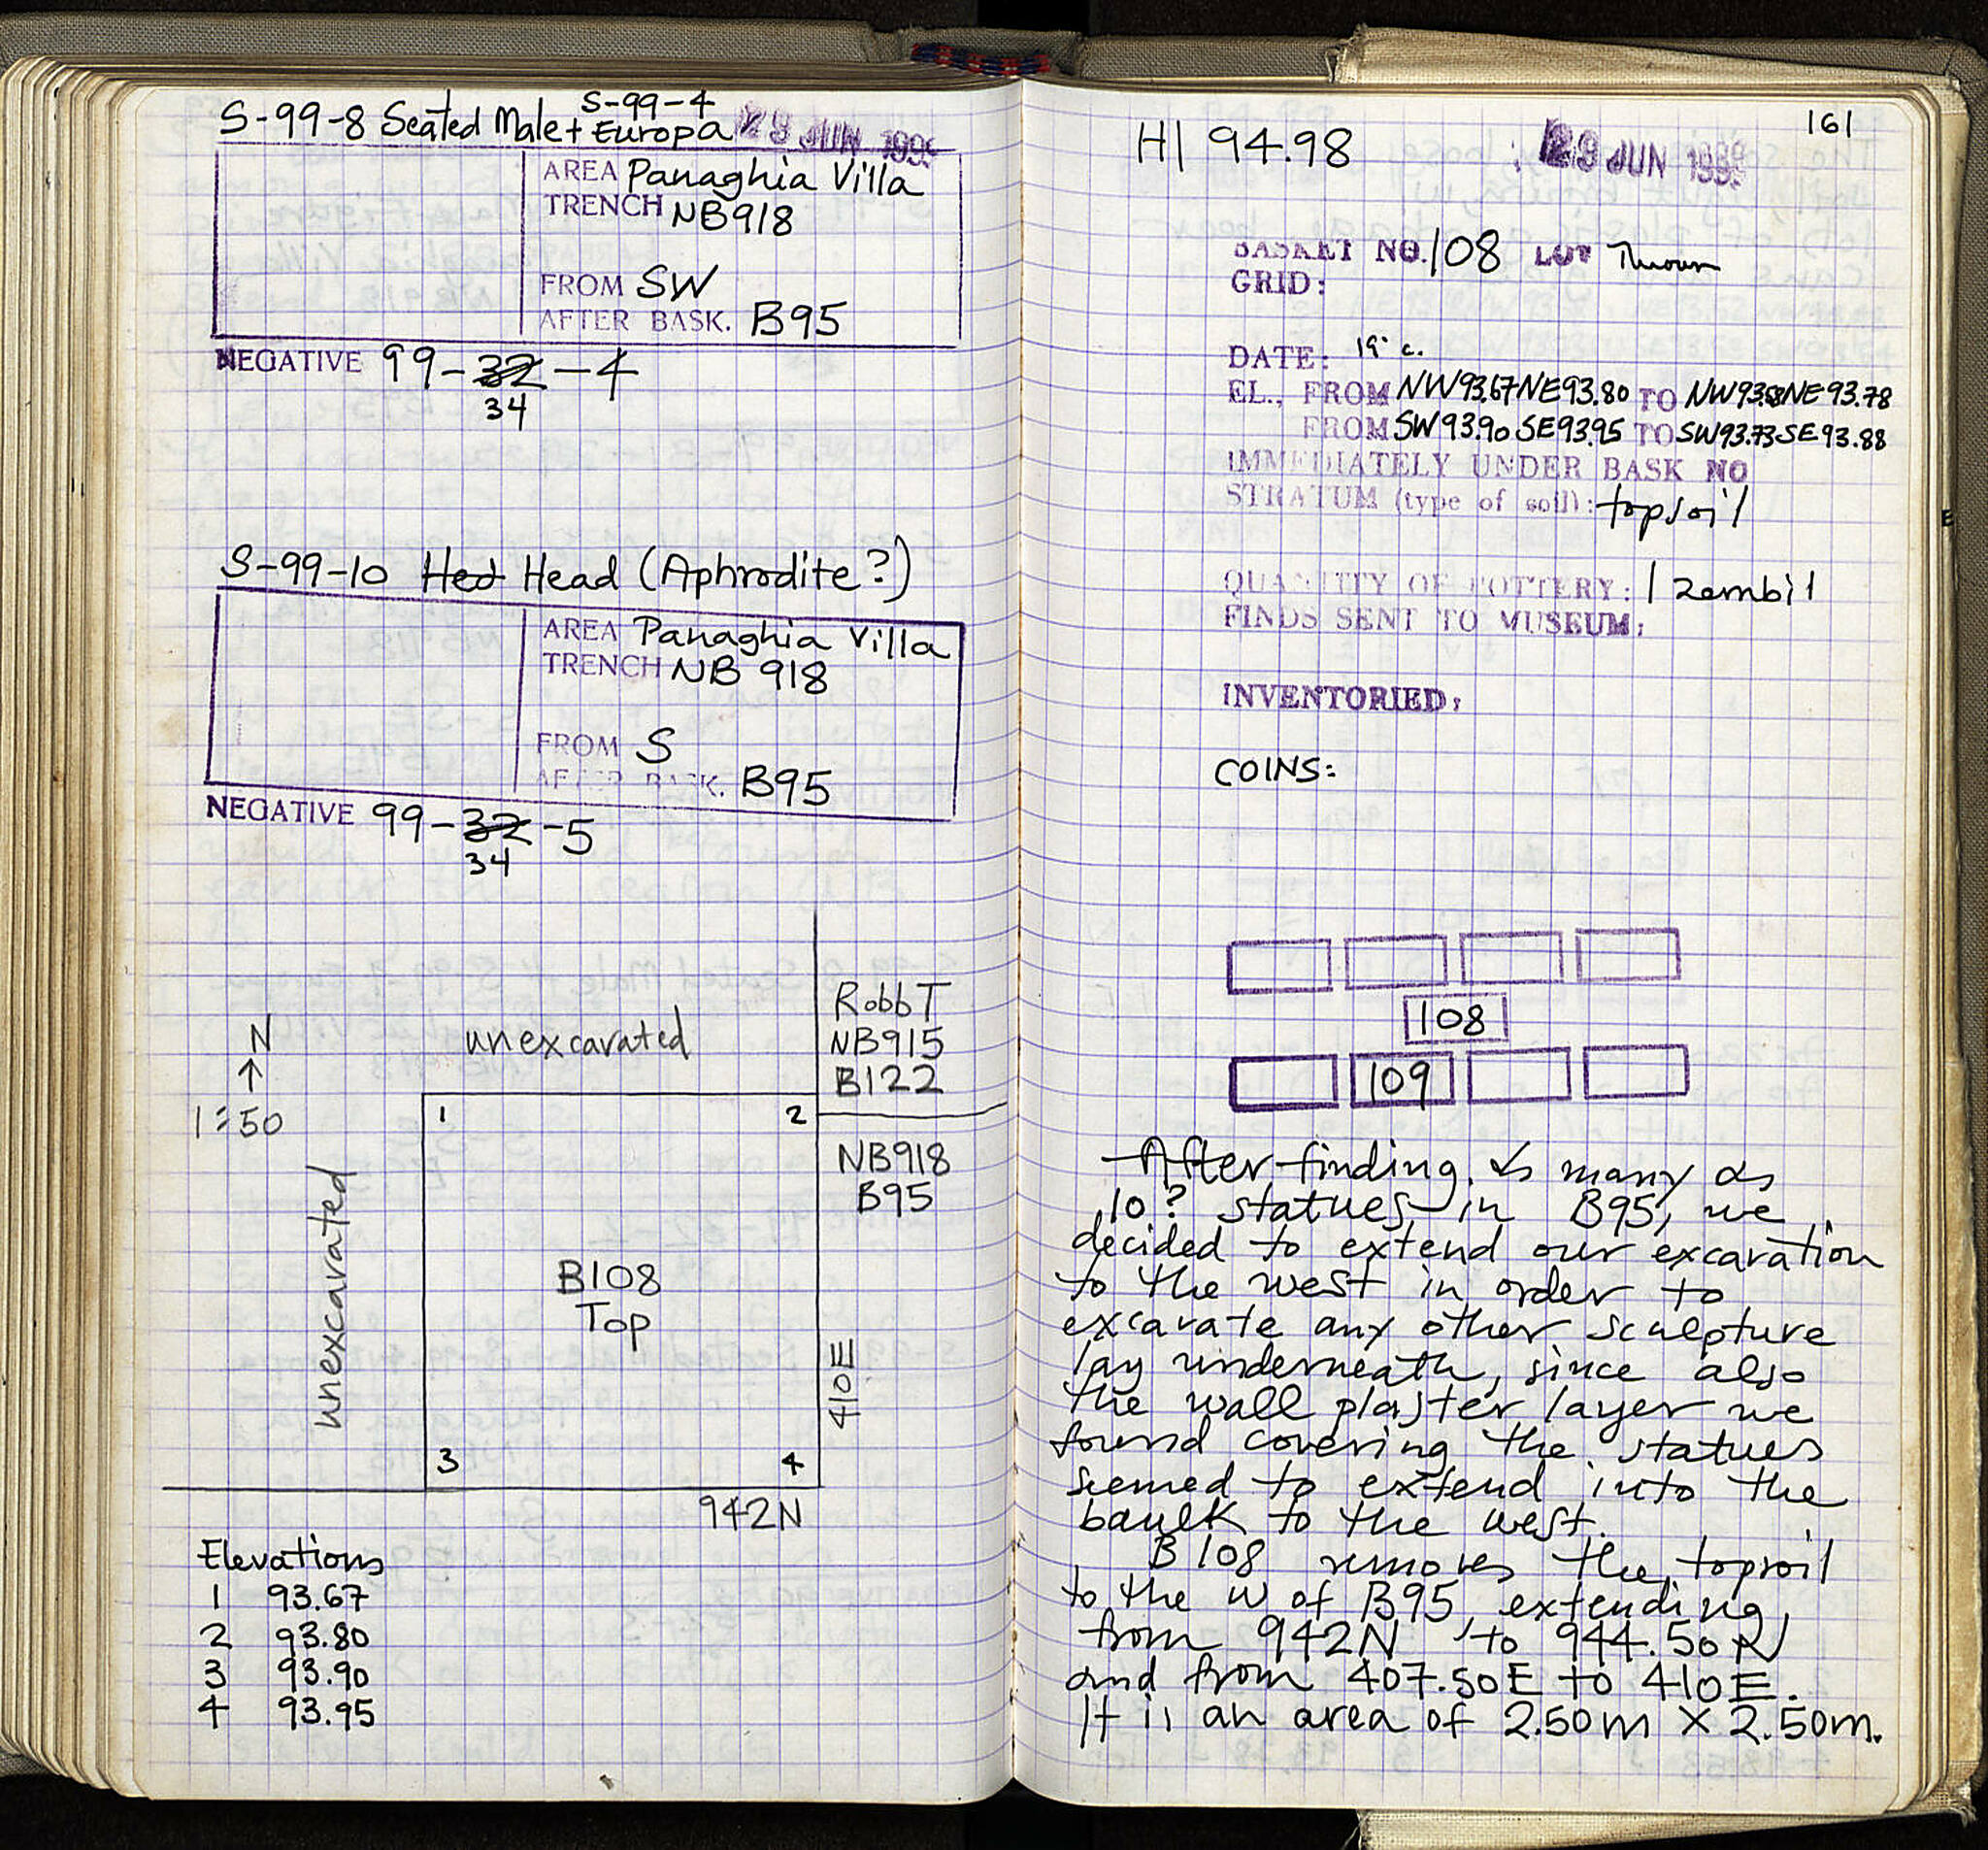 S-99-8 Seated Male + S-99-4 Europa 29 JUN 1999
AREA Panaghia Villa
TRENCH NB918
FROM SW
AFTER BASK. B95
NEGATIVE 99-32-4
34
S-99-10 Hed Head (Aphrodite?)
AREA Panaghia Villa
TRENCH NB 918
FROM S
AFTER BASK. B95
NEGATIVE 99-32-5
34
N
1:50
unexcavated
RobbT
NB915
B122
1
2
NB918
B95
unexcavated
B108
Top
410E
3
4
942N
Elevations
1 93.67
2 93.80
3 93.90
4 93.95
161
HI 94.98
29 JUN 1999
BASKET NO. 108 LOT Thrown
GRID:
DATE: 19° c.
EL., FROM NW93.67NE93.80 TO NW93.58NE93.78
FROM SW93.90SE93.95 TO SW93.73SE93.88
IMMEDIATELY UNDER BASK NO
STRATUM (type of soil): topsoil
QUANTITY OF POTTERY: 1 zembil
FINDS SENT TO MUSEUM:
INVENTORIED:
COINS:
108
109
After finding as many as
10? statues in B95, we
decided to extend our excavation
to the west in order to
excavate any other sculpture
lay underneath, since also
the wall plaster layer we
found covering the statues
seemed to extend into the
baulk to the west.
B108 removes the topsoil
to the W of B95, extending
from 942N to 944.50N
and from 407.50E to 410E.
It is an area of 2.50m X 2.50m.